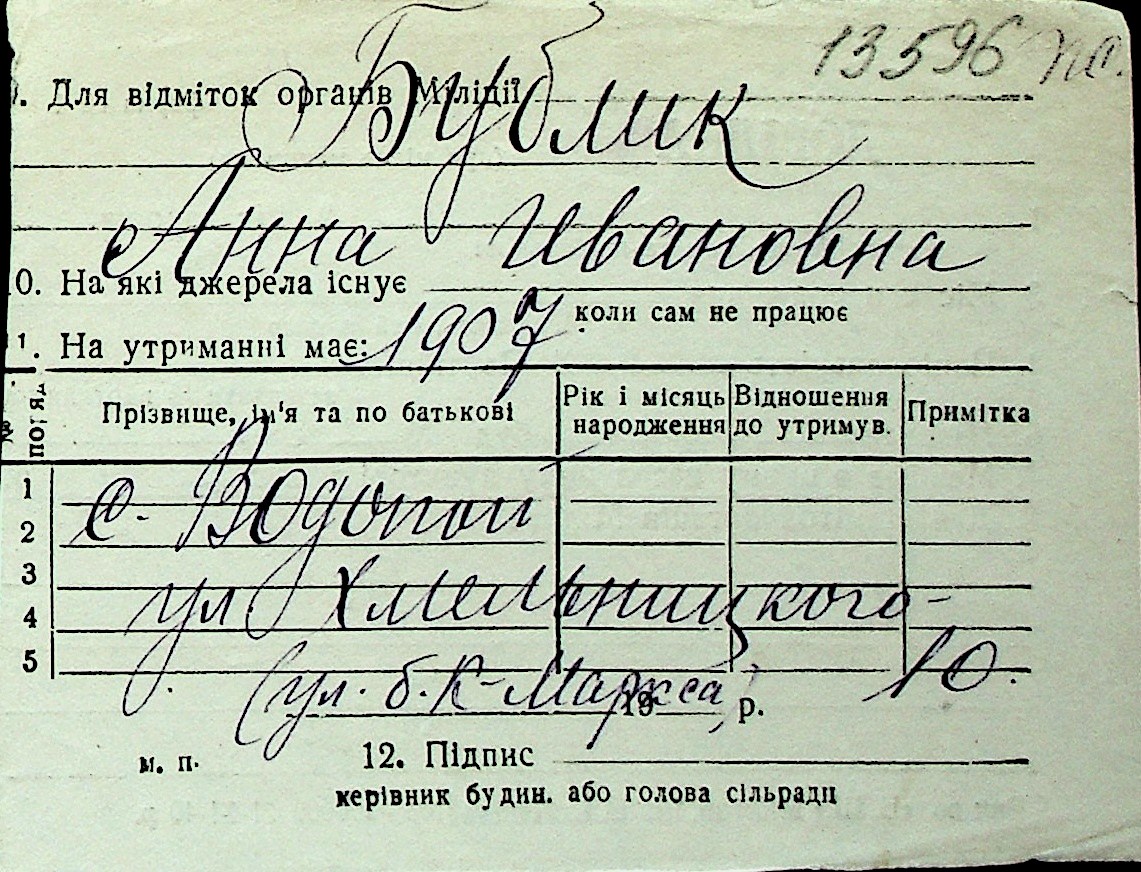 13596
. Для відміток органів Міліції
Бублик
Анна Ивановна
0. На які джерела існує
коли сам не працює
1. На утриманні має:
1907
Прізвище, ім'я та по батькові Рік і місяць народження Відношення до утримув. Примітка
1
с. Водопой
2
3
ул Хмельницкого-
4
10.
5
(ул. б. К-Маркса)
19 р.
м. п.
12. Підпис
керівник будин. або голова сільради